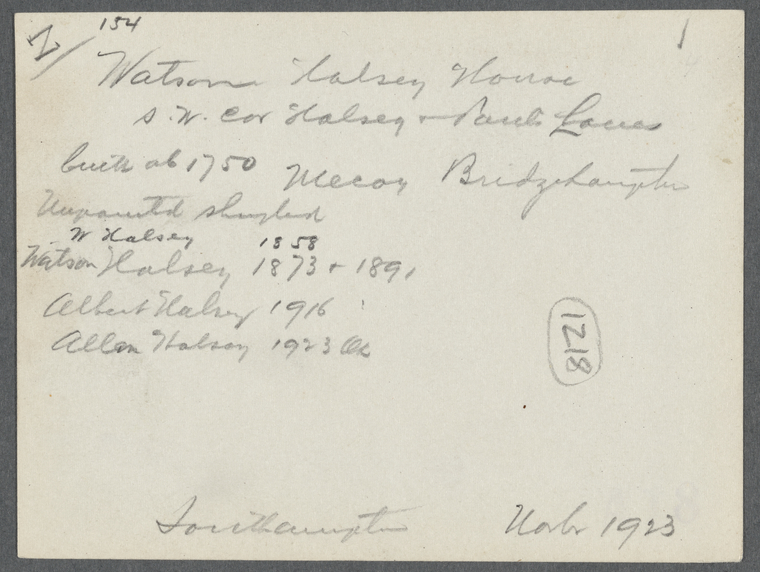 N/ 154
Watson Halsey House
S.W. Cor Halsey + Pauls Lanes
built ab 1750 Mecox Bridgehampton
Unpainted shingled
W Halsey 1858
Watson Halsey 1873 + 1891
Albert Halsey 1916
Allen Halsey 1923 Ok
1218
Southampton Novbr 1923